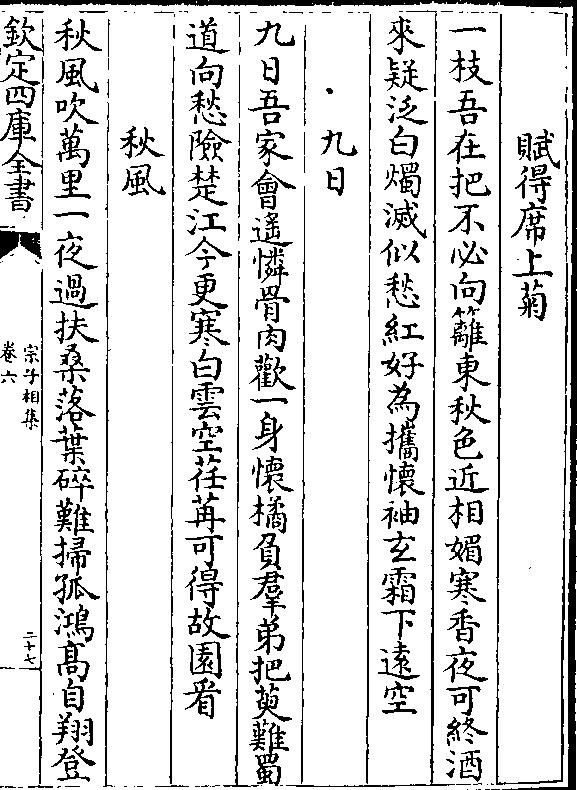 賦得席上菊
一枝吾在把不必向籬東秋色近相媚寒香夜可終酒
來疑泛白燭滅似愁紅好為攜懷袖玄霜下遠空
九日
九日吾家會遙憐骨肉歡一身懷橘負羣弟把萸難蜀
道向愁險楚江今更寒白雲空荏苒可得故園看
秋風
秋風吹萬里一夜過扶桑落葉碎難掃孤鴻高自翔登
欽定四庫全書
宗子相集
卷六
二十七